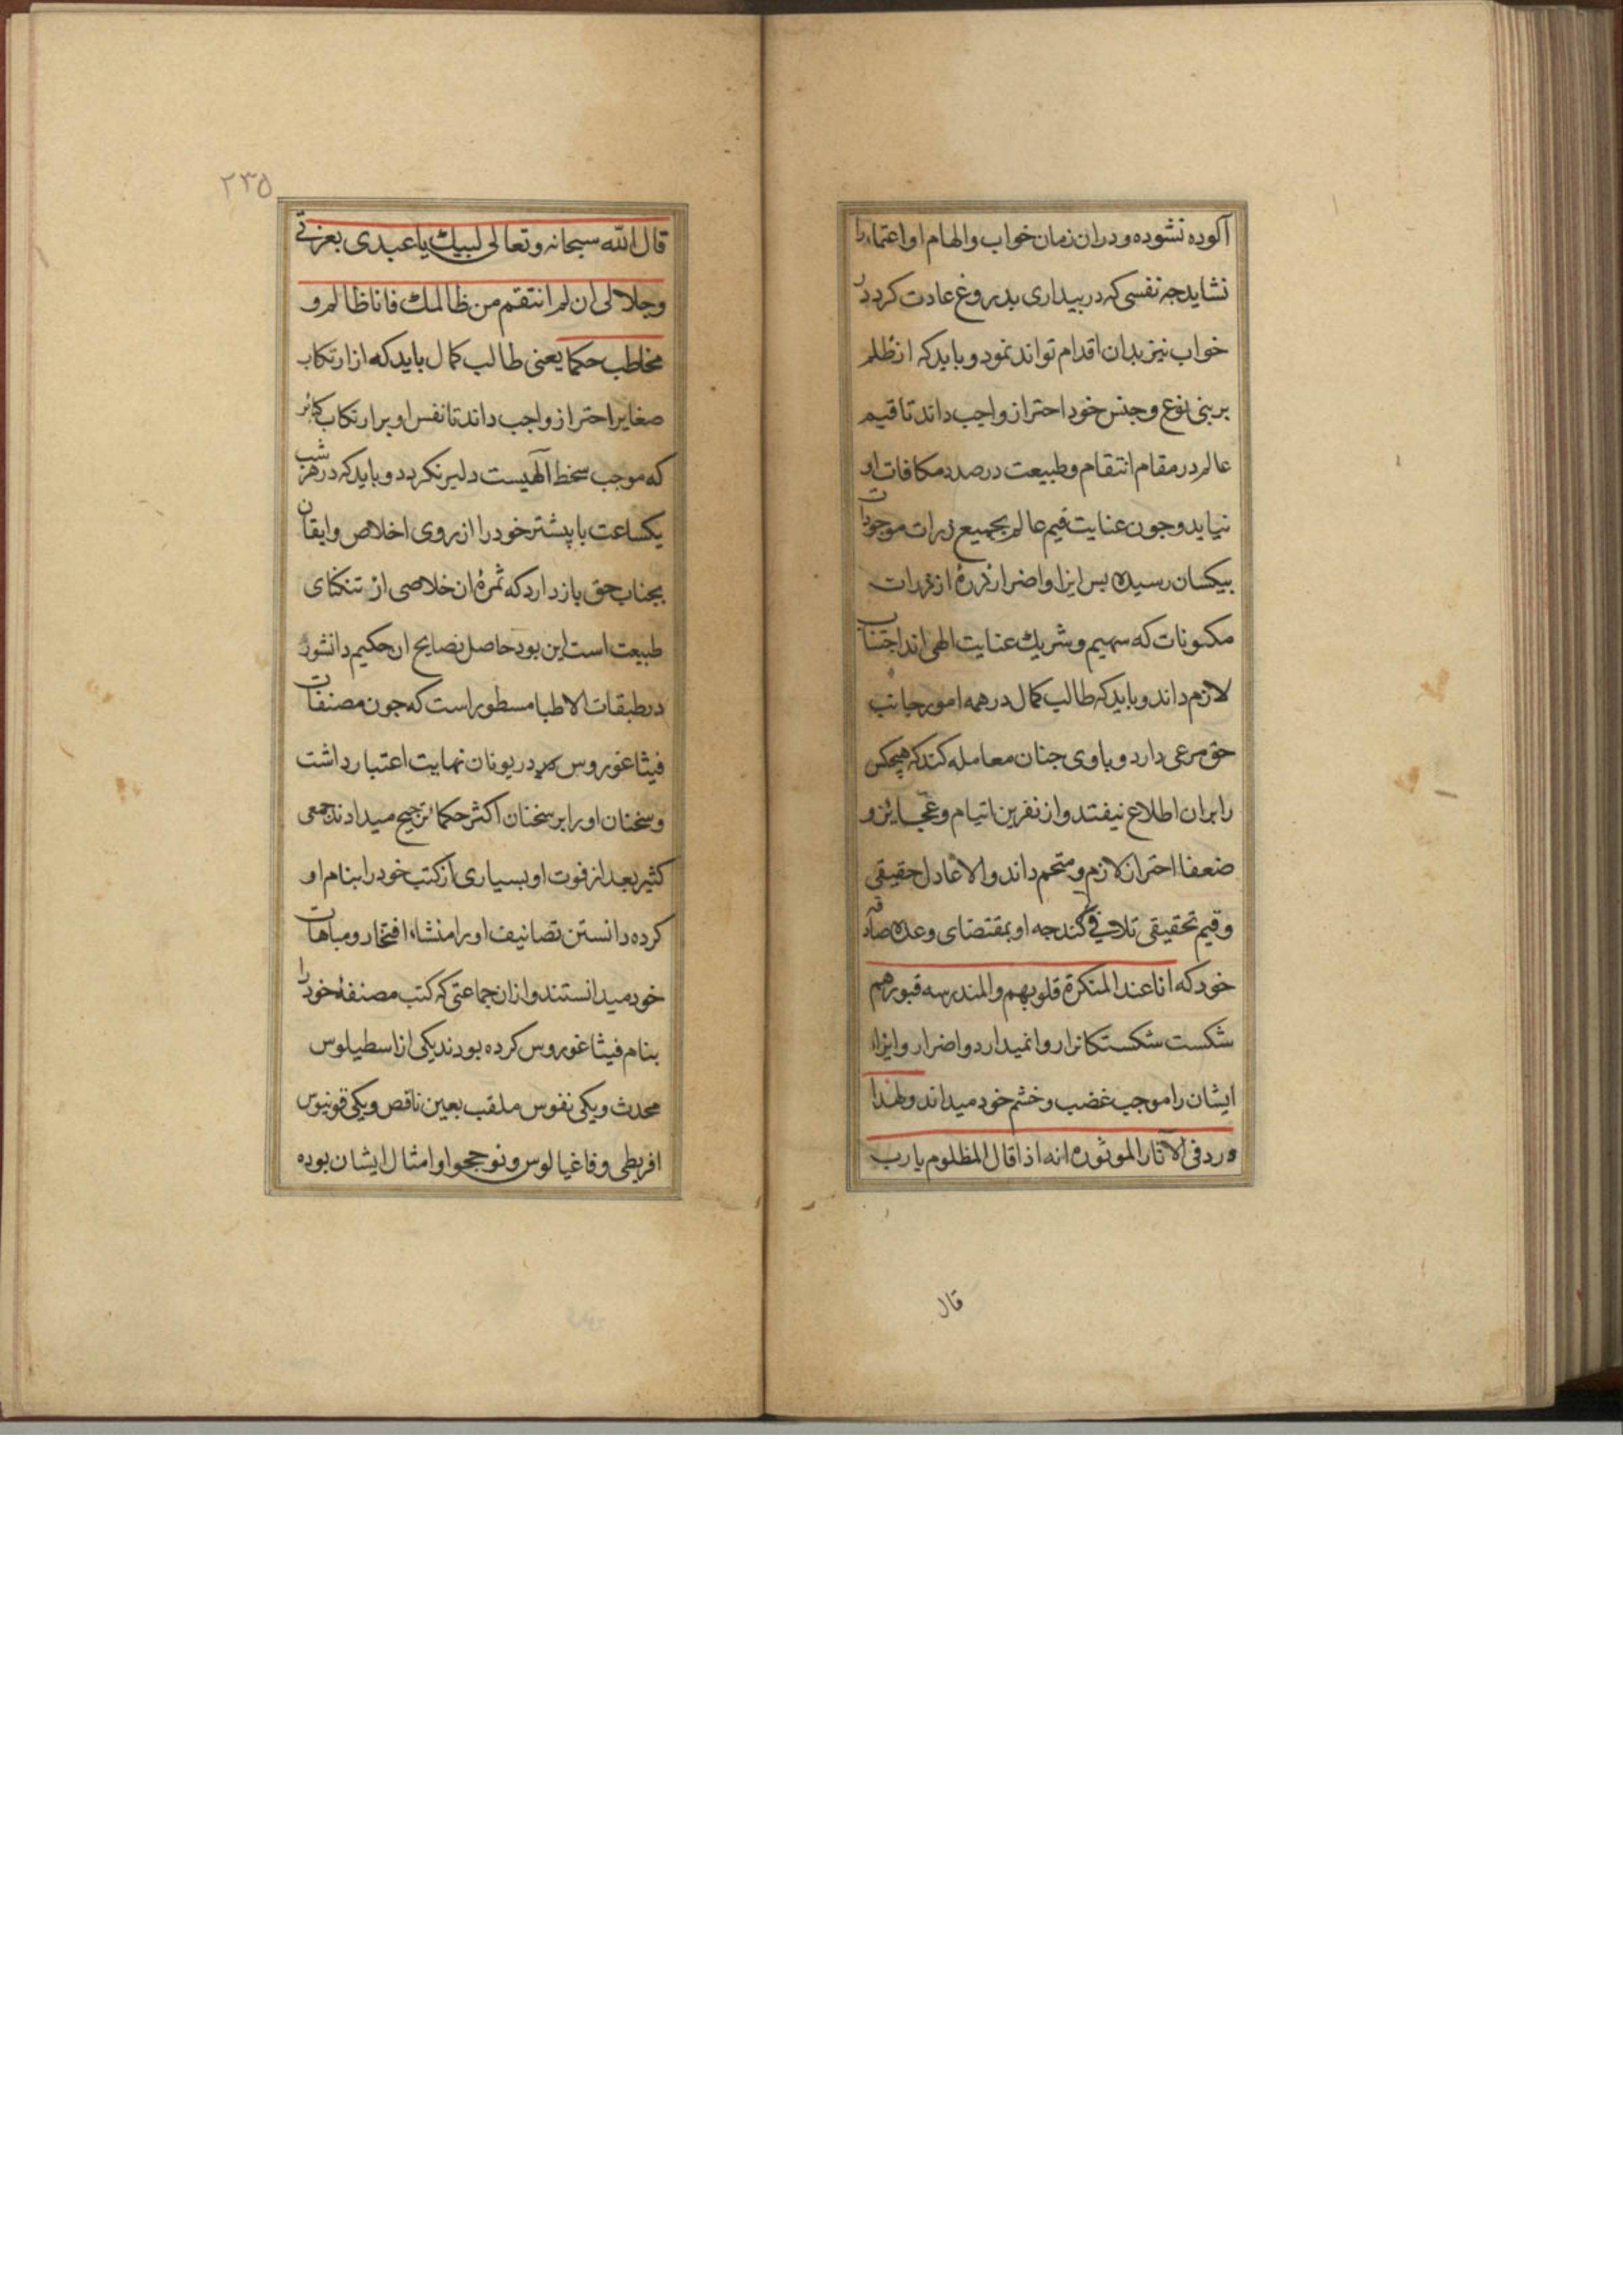 آلوده نشوده و دران زمان خواب و الهام او اعتماد را
نشاید جه نفسی که در بیداری بدروغ عادت کرد در
خواب نیز بدان اقدام تواند نمود و باید که از ظلم
بر بنی نوع و جنس خود احتراز واجب داند تا قیم
عالم در مقام انتقام و طبیعت در صدد مکافات او
نیاید و جون عنایت قیم عالم بجمیع ذرات موجودات
بیکسان رسیده بس ایزا و اضرار ذرهٔ از ذرات
مکنونات که سهیم و شریک عنایت الهی اند اجتناب
لازم داند و باید که طالب کمال در همه امور جانب
حق مرعی دارد و با وی جنان معامله کند که هیچکس
را بران اطلاع نیفتد و از نفرین ایتام و عجایز و
ضعفا احتراز لازم و متحم داند و الا عادل حقیقی
و قیم تحقیقی تلافی کند جه او بمقتضای وعده صادقه
خود که انا عند المنکرة قلوبهم و المندرسه قبورهم
شکست شکستکانرا روا نمیدارد و اضرار و ایزاء
ایشان را موجب غضب و خشم خود میداند و لهذا
ورد فی الآثار الموثوره انه اذا قال المظلوم یا رب
قال
۲۳۵
قال الله سبحانه و تعالی لبیک یا عبدی بعزتی
و جلالی ان لم انتقم من ظالمک فانا ظالم و
مخاطب حکما یعنی طالب کمال باید که از ارتکاب
صغایر احتراز واجب داند تا نفس او بر ارتکاب کبائر
که موجب سخط آلهیست دلیر نکردد و باید که در هر شب
یکساعت یا پیشتر خود را از روی اخلاص و ایقان
بجناب حق باز دارد که ثمرهٔ ان خلاصی از تنکنای
طبیعت است این بود حاصل نصایح ان حکیم دانشور
در طبقات الاطبا مسطور است که جون مصنفات
فیثاغوروس در یونان نهایت اعتبار داشت
و سخنان او را بر سخنان اکثر حکما ترجیح میدادند جمعی
کثیر بعد از فوت او بسیاری از کتب خود را بنام او
کرده دانستن تصانیف او را منشاء افتخار و مباهات
خود میدانستند و ازان جماعتی که کتب مصنفهٔ خود را
بنام فیثاغوروس کرده بودند یکی ازاسطیلوس
محدث و یکی نفوس ملقب بعین ناقص و یکی قونیوس
افریطی و فاغیالوس و نوججوا و امثال ایشان بوده